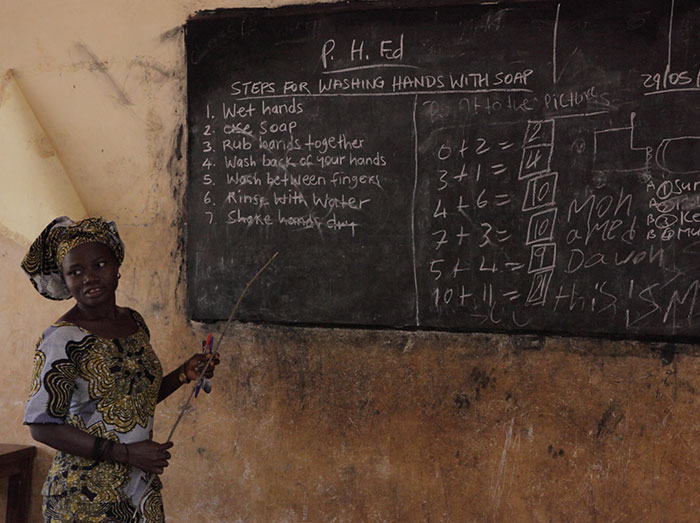 P. H. Ed
STEPS FOR WASHING HANDS WITH SOAP
1. Wet hands
2. use Soap
3. Rub hands together
4. Wash back of your hands
5. Wash between fingers
6. Rinse With Water
7. Shake hands dry
to the Picture
0 + 2 = 2
3 + 1 = 4
4 + 6 = 10
7 + 3 = 10
5 + 4 = 9
10 + 11 =
Moh
amed
Dawoh
this is M
29/05/
A 1 Su
A
B
B